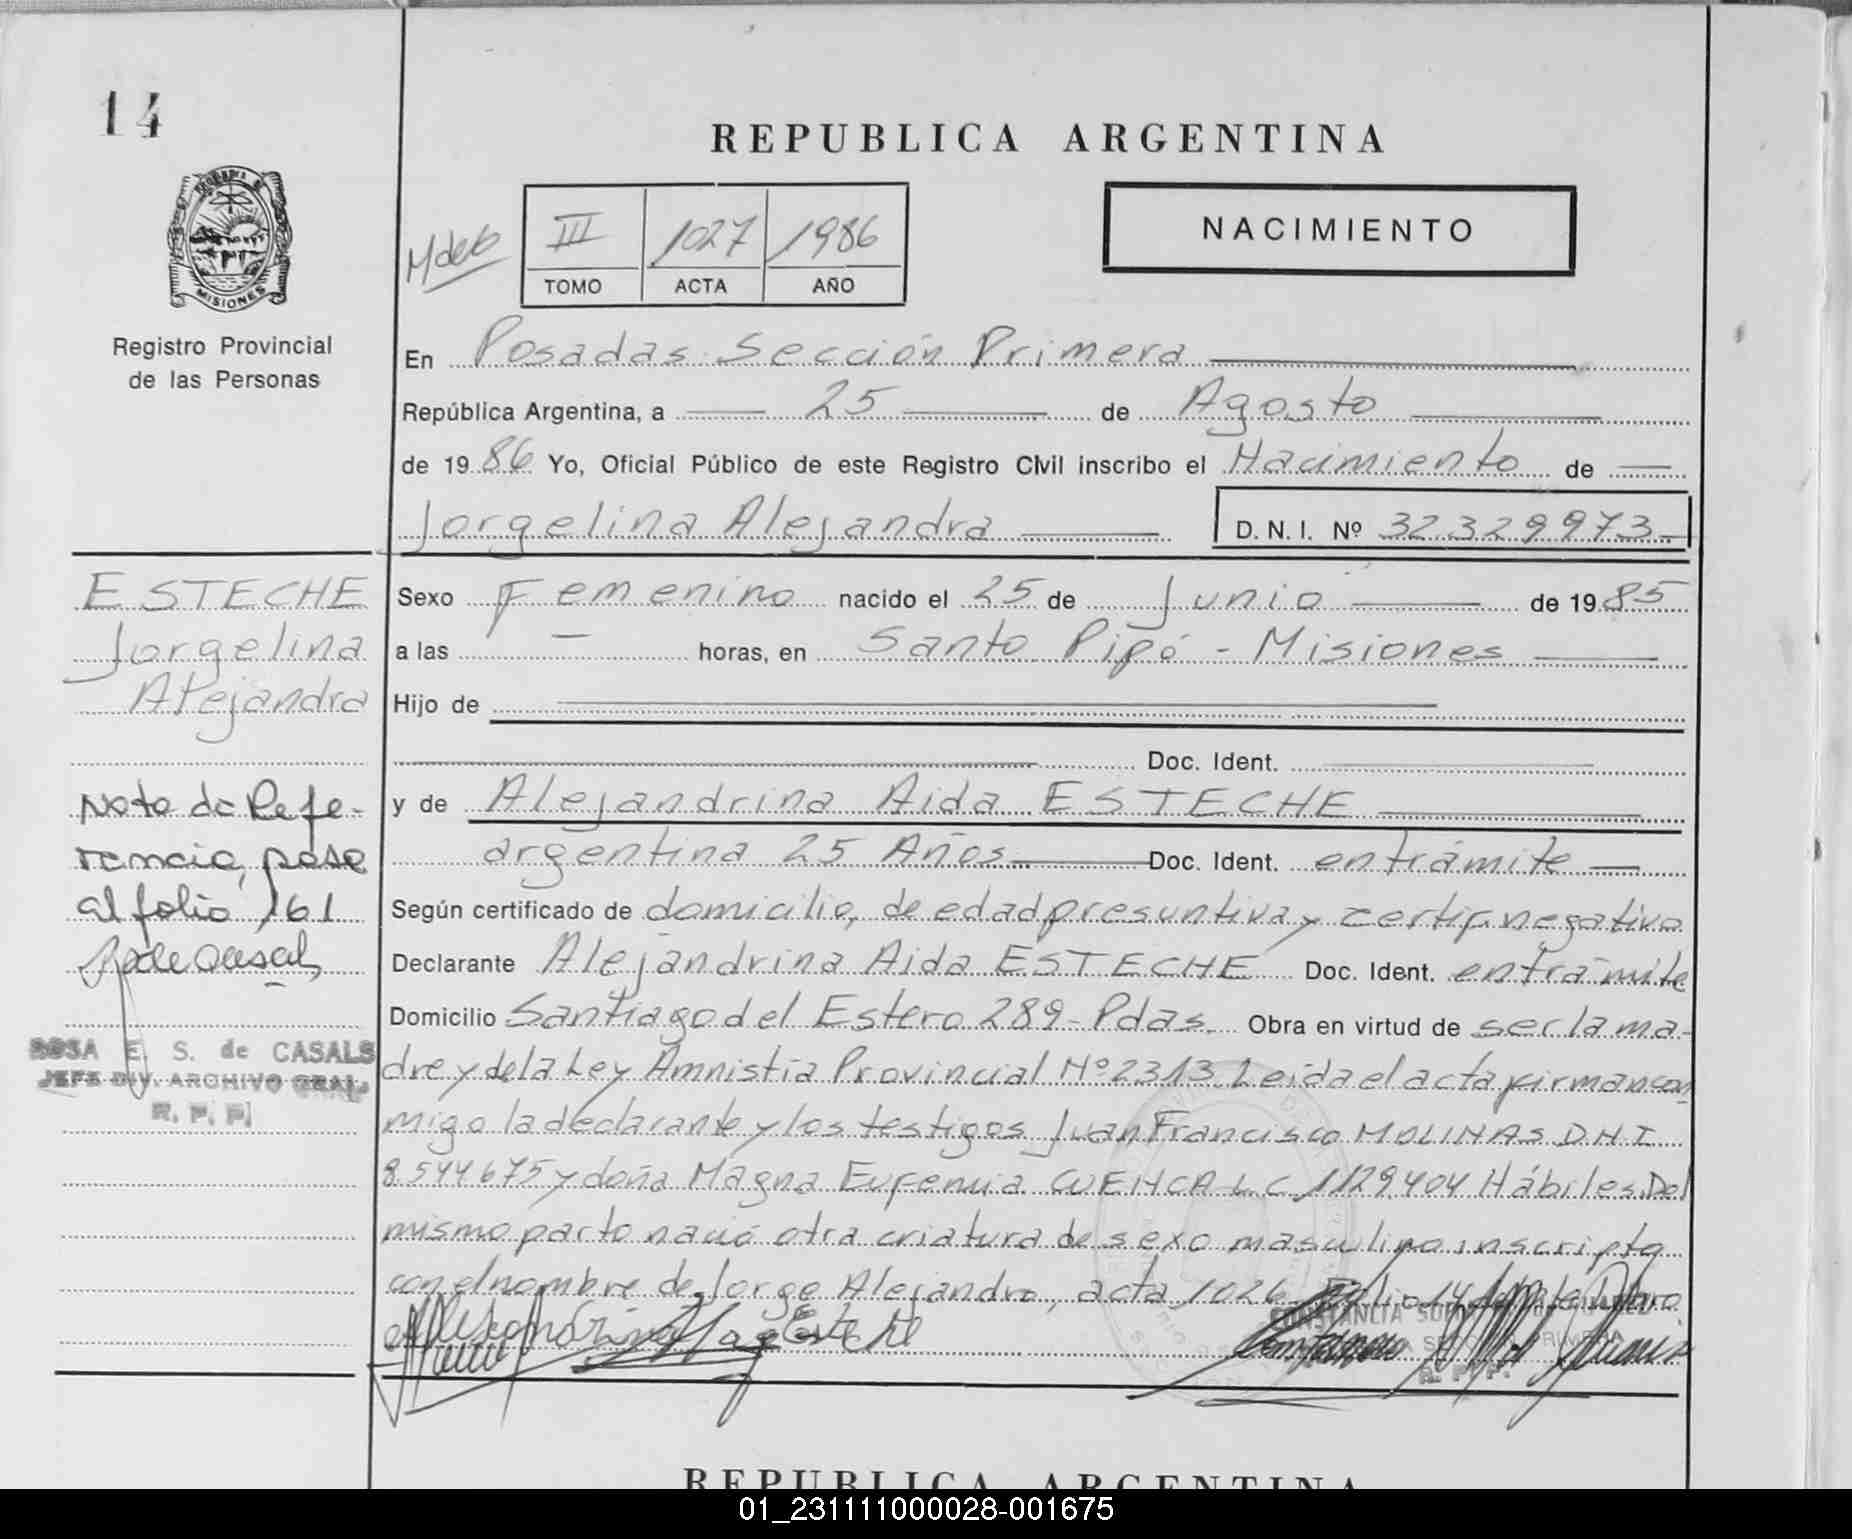 14
REPUBLICA ARGENTINA
PROVINCIA DE
MISIONES
III 1027 1986
TOMO ACTA AÑO
NACIMIENTO
Registro Provincial
de las Personas
En Posadas Sección Primera
República Argentina, a 25 de Agosto
de 1986 Yo, Oficial Público de este Registro Civil inscribo el Nacimiento de
Jorgelina Alejandra D. N. I. Nº 32329973
ESTECHE
Jorgelina
Alejandra
Sexo Femenino nacido el 25 de Junio de 1985
a las — horas, en Santo Pipó - Misiones
Hijo de
Doc. Ident.
y de Alejandrina Aida ESTECHE
argentina 25 Años Doc. Ident. en trámite
Nota de Refe-
rencia, pasa
al folio 161
ROSA E. S. de CASALS
JEFE DIV. ARCHIVO GRAL.
R. P. P.
Según certificado de domicilio, de edad presuntiva y certif. negativo
Declarante Alejandrina Aida ESTECHE Doc. Ident. en trámite
Domicilio Santiago del Estero 289 - Pdas. Obra en virtud de ser la ma-
dre y de la Ley Amnistía Provincial Nº 2313. Leída el acta firman con
migo la declarante y los testigos Juan Francisco MOLINAS D.N.I
8.544675 y doña Magna Eufemia L.C 1129.404 Hábiles. Del
mismo parto nació otra criatura de sexo masculino inscripta
con el nombre de Jorge Alejandro, acta 1026 Folio 14
CONSTANCIA
SECCION PRIMERA
R. P. P.
REPUBLICA ARGENTINA
01_231111000028-001675